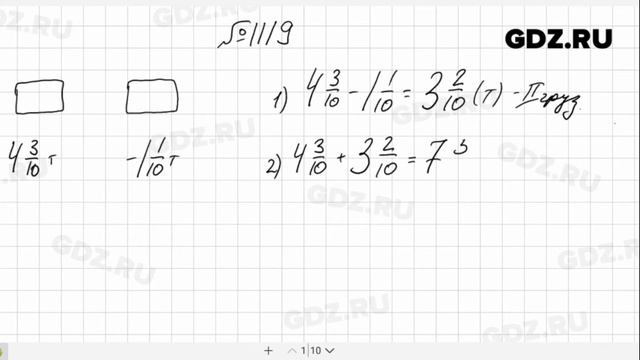 №1119
GDZ.RU
1) 4 3/10 - 1 1/10 = 3 2/10 (т) - II груз.
4 3/10 т
-1 1/10 т
2) 4 3/10 + 3 2/10 = 7 5
GDZ.RU
GDZ.RU
GDZ.RU
GDZ.RU
GDZ.RU
GDZ.RU
GDZ.RU
GDZ.RU
GDZ.RU
1 10